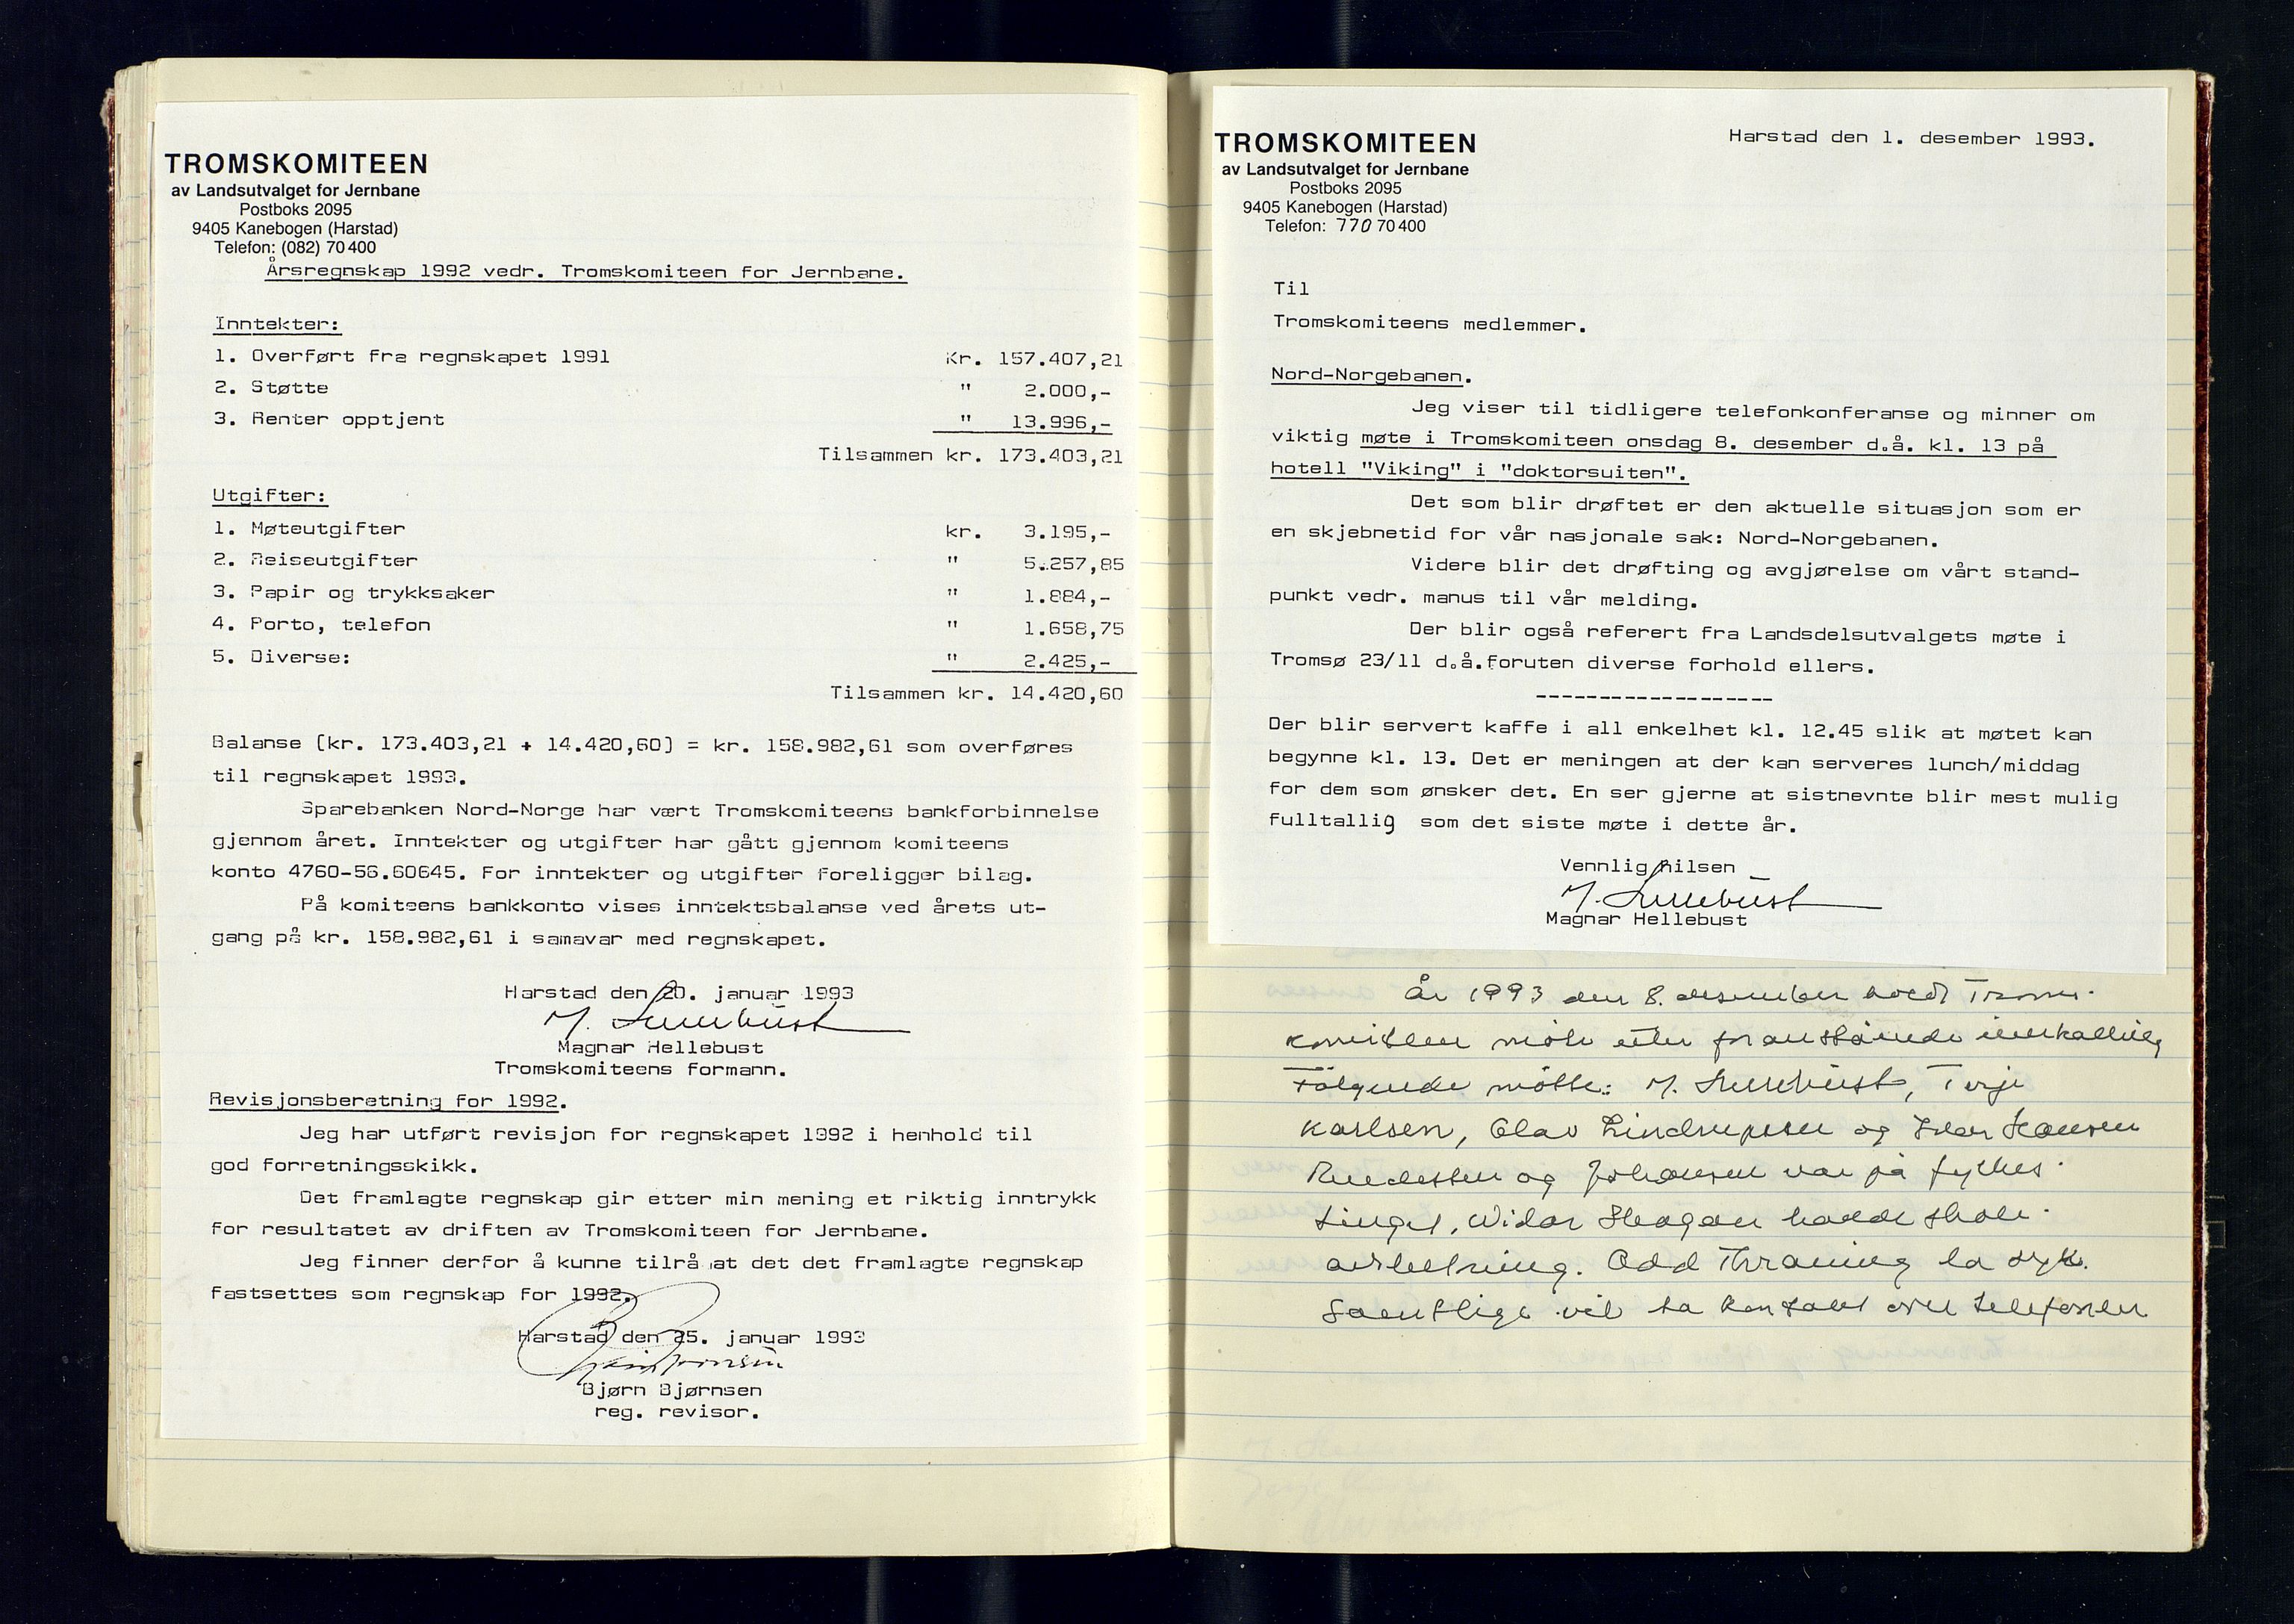 TROMSKOMITEEN
av Landsutvalget for Jernbane
Postboks 2095
9405 Kanebogen (Harstad)
Telefon: (082) 70 400
Årsregnskap 1992 vedr. Tromskomiteen for Jernbane.
Inntekter:
1. Overført fra regnskapet 1991 Kr. 157.407,21
2. Støtte " 2.000,-
3. Renter opptjent " 13.996,-
Tilsammen kr. 173.403,21
Utgifter:
1. Møteutgifter kr. 3.195,-
2. Reiseutgifter " 5.257,85
3. Papir og trykksaker " 1.884,-
4. Porto, telefon " 1.658,75
5. Diverse: " 2.425,-
Tilsammen kr. 14.420,60
Balanse (kr. 173.403,21 + 14.420,60) = kr. 158.982,61 som overføres
til regnskapet 1993.
Sparebanken Nord-Norge har vært Tromskomiteens bankforbinnelse
gjennom året. Inntekter og utgifter har gått gjennom komiteens
konto 4760-56.60645. For inntekter og utgifter foreligger bilag.
På komiteens bankkonto vises inntektsbalanse ved årets ut-
gang på kr. 158.982,61 i samavar med regnskapet.
Harstad den 20. januar 1993
M. Hellebust
Magnar Hellebust
Tromskomiteens formann.
Revisjonsberetning for 1992.
Jeg har utført revisjon for regnskapet 1992 i henhold til
god forretningsskikk.
Det framlagte regnskap gir etter min mening et riktig inntrykk
for resultatet av driften av Tromskomiteen for Jernbane.
Jeg finner derfor å kunne tilrå at det det framlagte regnskap
fastsettes som regnskap for 1992.
Harstad den 25. januar 1993
Bjørn Bjørnsen
reg. revisor.
TROMSKOMITEEN
av Landsutvalget for Jernbane
Postboks 2095
9405 Kanebogen (Harstad)
Telefon: 770 70 400
Harstad den 1. desember 1993.
Til
Tromskomiteens medlemmer.
Nord-Norgebanen.
Jeg viser til tidligere telefonkonferanse og minner om
viktig møte i Tromskomiteen onsdag 8. desember d.å. kl. 13 på
hotell "Viking" i "doktorsuiten".
Det som blir drøftet er den aktuelle situasjon som er
en skjebnetid for vår nasjonale sak: Nord-Norgebanen.
Videre blir det drøfting og avgjørelse om vårt stand-
punkt vedr. manus til vår melding.
Der blir også referert fra Landsdelsutvalgets møte i
Tromsø 23/11 d.å.foruten diverse forhold ellers.
-------------------
Der blir servert kaffe i all enkelhet kl. 12.45 slik at møtet kan
begynne kl. 13. Det er meningen at der kan serveres lunch/middag
for dem som ønsker det. En ser gjerne at sistnevnte blir mest mulig
fulltallig som det siste møte i dette år.
Vennlig hilsen
M. Hellebust
Magnar Hellebust
År 1993 den 8. desember holdt Troms-
komiteen møte etter foranstående innkalling
Følgende møtte: M. Hellebust, Terje
Karlsen, Olav Lindrupsen og Ivar Hansen
og Johansen var på fylkes-
tinget, Widar Skogan hadde skole-
avslutning. Odd Thraning la syk.
Samtlige vil ta kontakt over telefonen